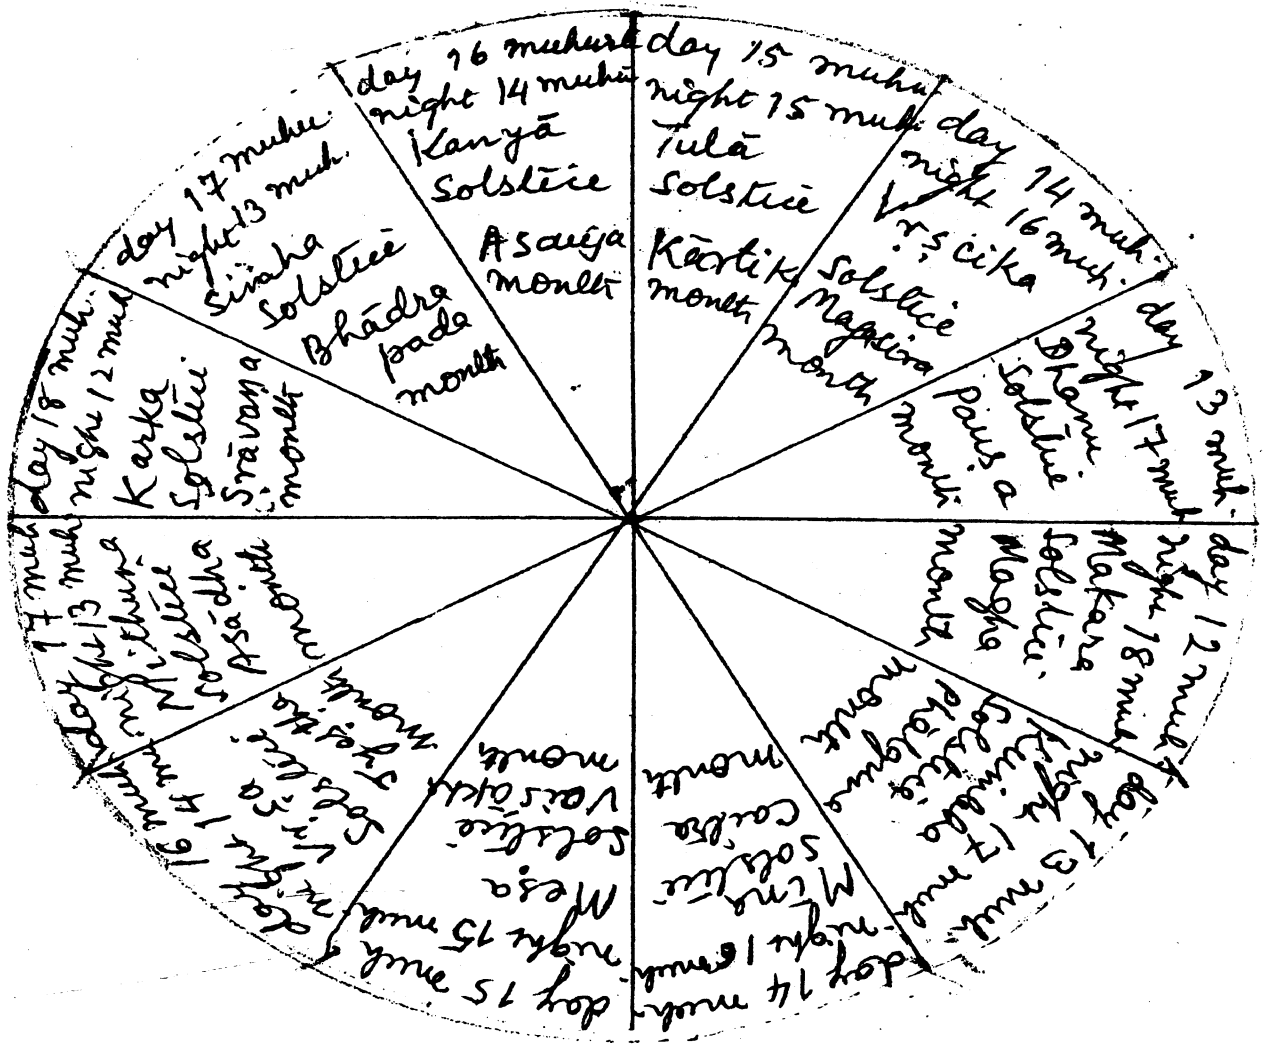 day 15 muhu.
night 15 muh.
Tulā
Solstice
Kārtik
month
day 14 muh.
night 16 muh.
Vṛścika
Solstice
Magsira
month
day 13 muh.
night 17 muh
Dhanu
Solstice
Pausa
month
day 12 muh
night 18 muh
Makara
Solstice.
Magha
month
day 13 muh
night 17 muh
Kumbha
Solstice
Phālguna
month
day 14 muh
night 16 muh
Mīna
Solstice
Caitra
month
day 15 muh
night 15 muh
Meṣa
Solstice
Vaiśākha
month
day 16 muh
night 14 mu
Vṛṣa
Solstice
Jyeṣṭha
month
day 17 muh
night 13 muh
Mithuna
Solstice
Asādha
month
day 18 muh.
night 12 muh
Karka
Solstice
Srāvaṇa
month
day 17 muhu.
night 13 muh.
Siṁha
Solstice
Bhādra
pada
month
day 16 muhurt
night 14 muhu
Kanyā
Solstice
Asauja
month